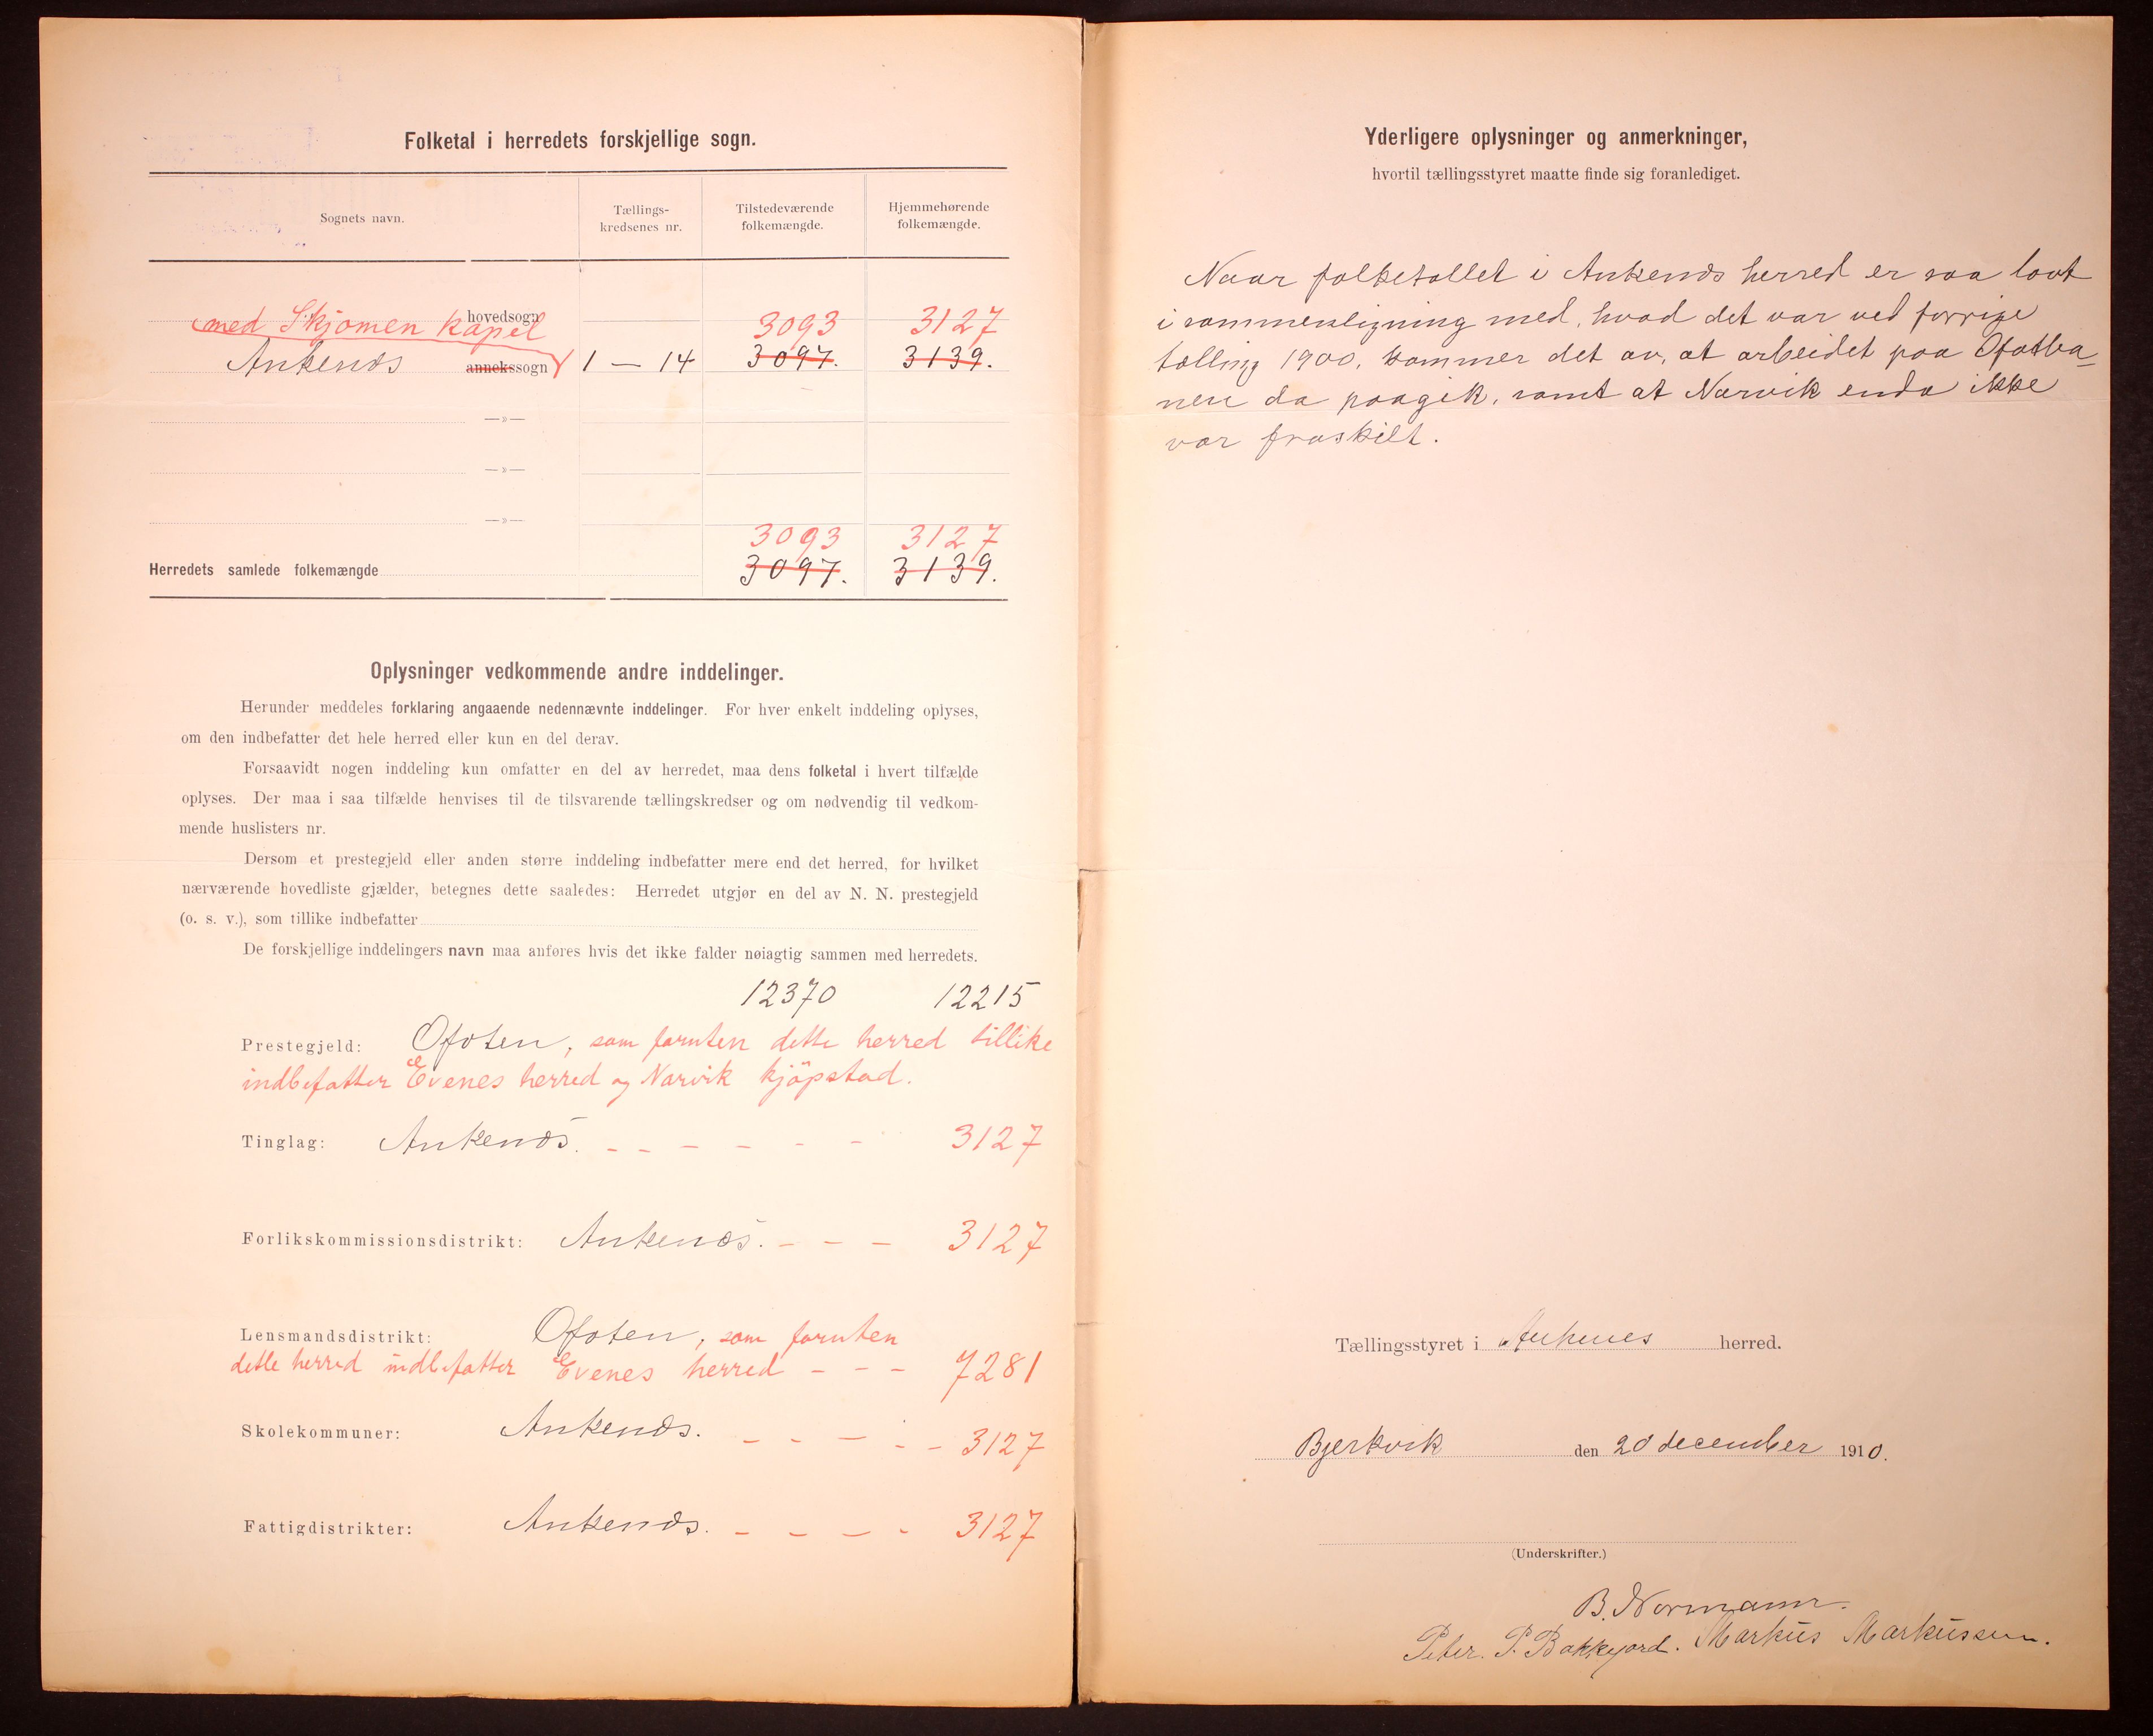 Folketal i herredets forskjellige sogn.
Sognets navn.
Tællings-
kredsenes nr.
Tilstedeværende
folkemængde.
Hjemmehørende
folkemængde.
hovedsogn
med Skjomen kapel 3093 3127
Ankenæs annekssogn 1 — 14 3097. 3139.
—»—
—»—
—»—
3093 3127
Herredets samlede folkemængde 3097. 3139.
Oplysninger vedkommende andre inddelinger.
Herunder meddeles forklaring angaaende nedennævnte inddelinger. For hver enkelt inddeling oplyses,
om den indbefatter det hele herred eller kun en del derav.
Forsaavidt nogen inddeling kun omfatter en del av herredet, maa dens folketal i hvert tilfælde
oplyses. Der maa i saa tilfælde henvises til de tilsvarende tællingskredser og om nødvendig til vedkom-
mende huslisters nr.
Dersom et prestegjeld eller anden større inddeling indbefatter mere end det herred, for hvilket
nærværende hovedliste gjælder, betegnes dette saaledes: Herredet utgjør en del av N. N. prestegjeld
(o. s. v.), som tillike indbefatter
De forskjellige inddelingers navn maa anføres hvis det ikke falder nøiagtig sammen med herredets.
12370 12215
Prestegjeld: Ofoten, som foruten dette herred tillike
indbefatter Evenes herred og Narvik kjöpstad.
Tinglag: Ankenæs. - - - - - - 3127
Forlikskommissionsdistrikt: Ankenæs. - - - 3127
Lensmandsdistrikt: Ofoten, som foruten
dette herred indbefatter Evenes herred - - - 7281
Skolekommuner: Ankenæs. - - - - - 3127
Fattigdistrikter: Ankenæs. - - - - 3127
Yderligere oplysninger og anmerkninger,
hvortil tællingsstyret maatte finde sig foranlediget.
Naar folketallet i Ankenæs herred er saa lavt
i sammenligning med, hvad det var ved forrige
tælling 1900, kommer det av, at arbeidet paa Ofotba-
nen da paagik, samt at Narvik enda ikke
var fraskilt.
Tællingsstyret i Ankenes herred.
Bjerkvik den 20 december 1910.
(Underskrifter.)
B. Normann.
Peter. P. Bakkejord. Markus Markussen.